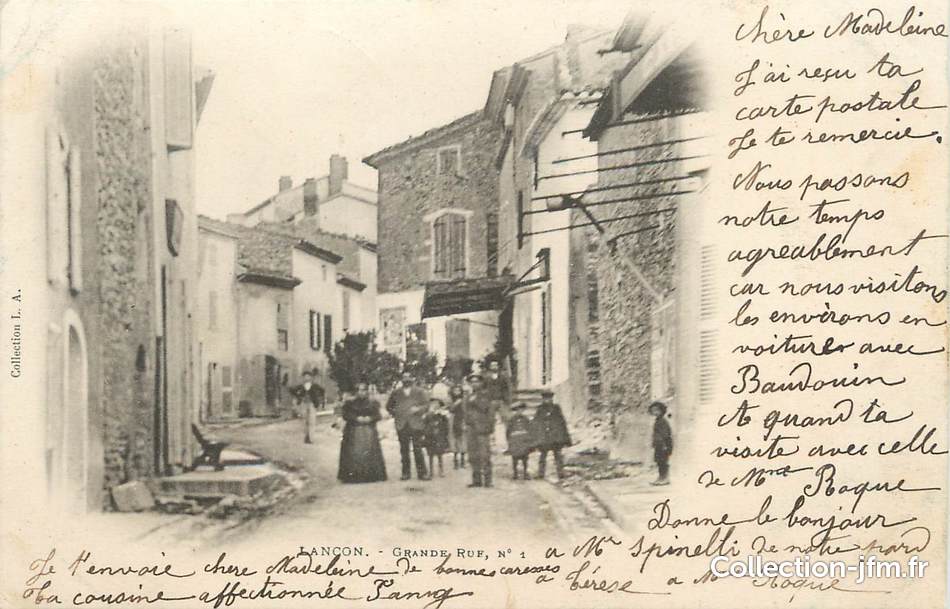 chère Madeleine
J'ai reçu ta
carte postale
Je te remercie.
Nous passons
notre temps
agreablement
car nous visitons
les environs en
voiture avec
Baudouin
A quand ta
visite avec celle
de Mme Roque
Donne le bonjour
a Mr Spinelli de notre part
a Mme Roque
Je t'envoie chere Madeleine de bonnes caresses
a Térese
ta cousine affectionnée
LANÇON. - GRANDE RUE, N° 1
Collection L. A.
Collection-jfm.fr